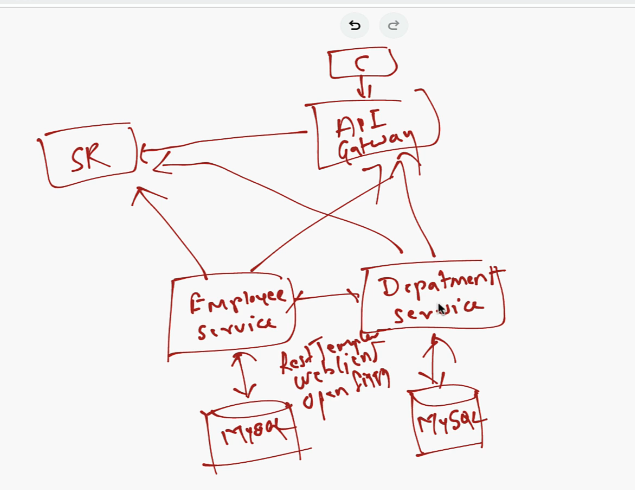 C
API
Gateway
SR
Employee
service
Depatment
service
RestTemplate
webclient
open
MySQL
MySQL